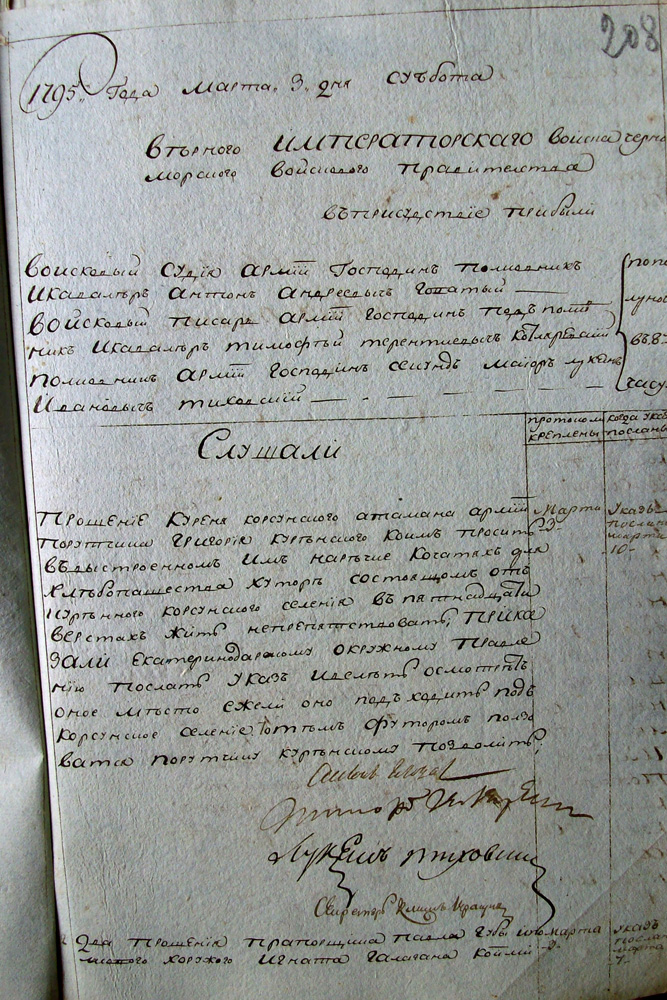 208
1795: Года Марта 3 дня Суббота
Вѣрного ИМПЕРАТОРСКАГО Войска Черно
морского войскового правителства
въ присудствие прибыли
Войсковый Судія армій Господинъ полковникъ
икавалѣръ Антонъ Андреевичъ Головатый
Войсковый писарь армій Господинъ подъ полко
никъ икавалѣръ тимофѣй терентиевичъ Котляревский
полковникъ армій Господинъ секундъ маиоръ лукянъ
Ивановичъ тиховский
попо
луно
въ 8
часу
Слушали
протокол когда указ
креплены посланы
Прошение Куреня корсунского атамана армій Марта Указъ
порутчика Григория Курѣнского коимъ проситъ 3 посланъ
въ выстроенномъ имъ наречке Кочатяхъ для марта
хлѣбопашества хуторѣ состоящомъ отъ 10
курѣнного корсунского селения въ пятнадцати
верстахъ жить непрепятствовать; Прика
зали Екатеринодарскому окружному Правле
нию послать указъ ивелѣть осмотрѣть
оное мѣсто ежели оно подъходитъ подъ
корсунское селение тотѣмъ футоромъ ползо
ватся порутчику курѣнскому позволить;
Антонъ
Тимофей Котляревский
Лукянъ тиховский
Секретарь
два Прошения прапорщика павла Губы имарта Указъ
хоружого Игната Галагана коими 3 посланъ
марта